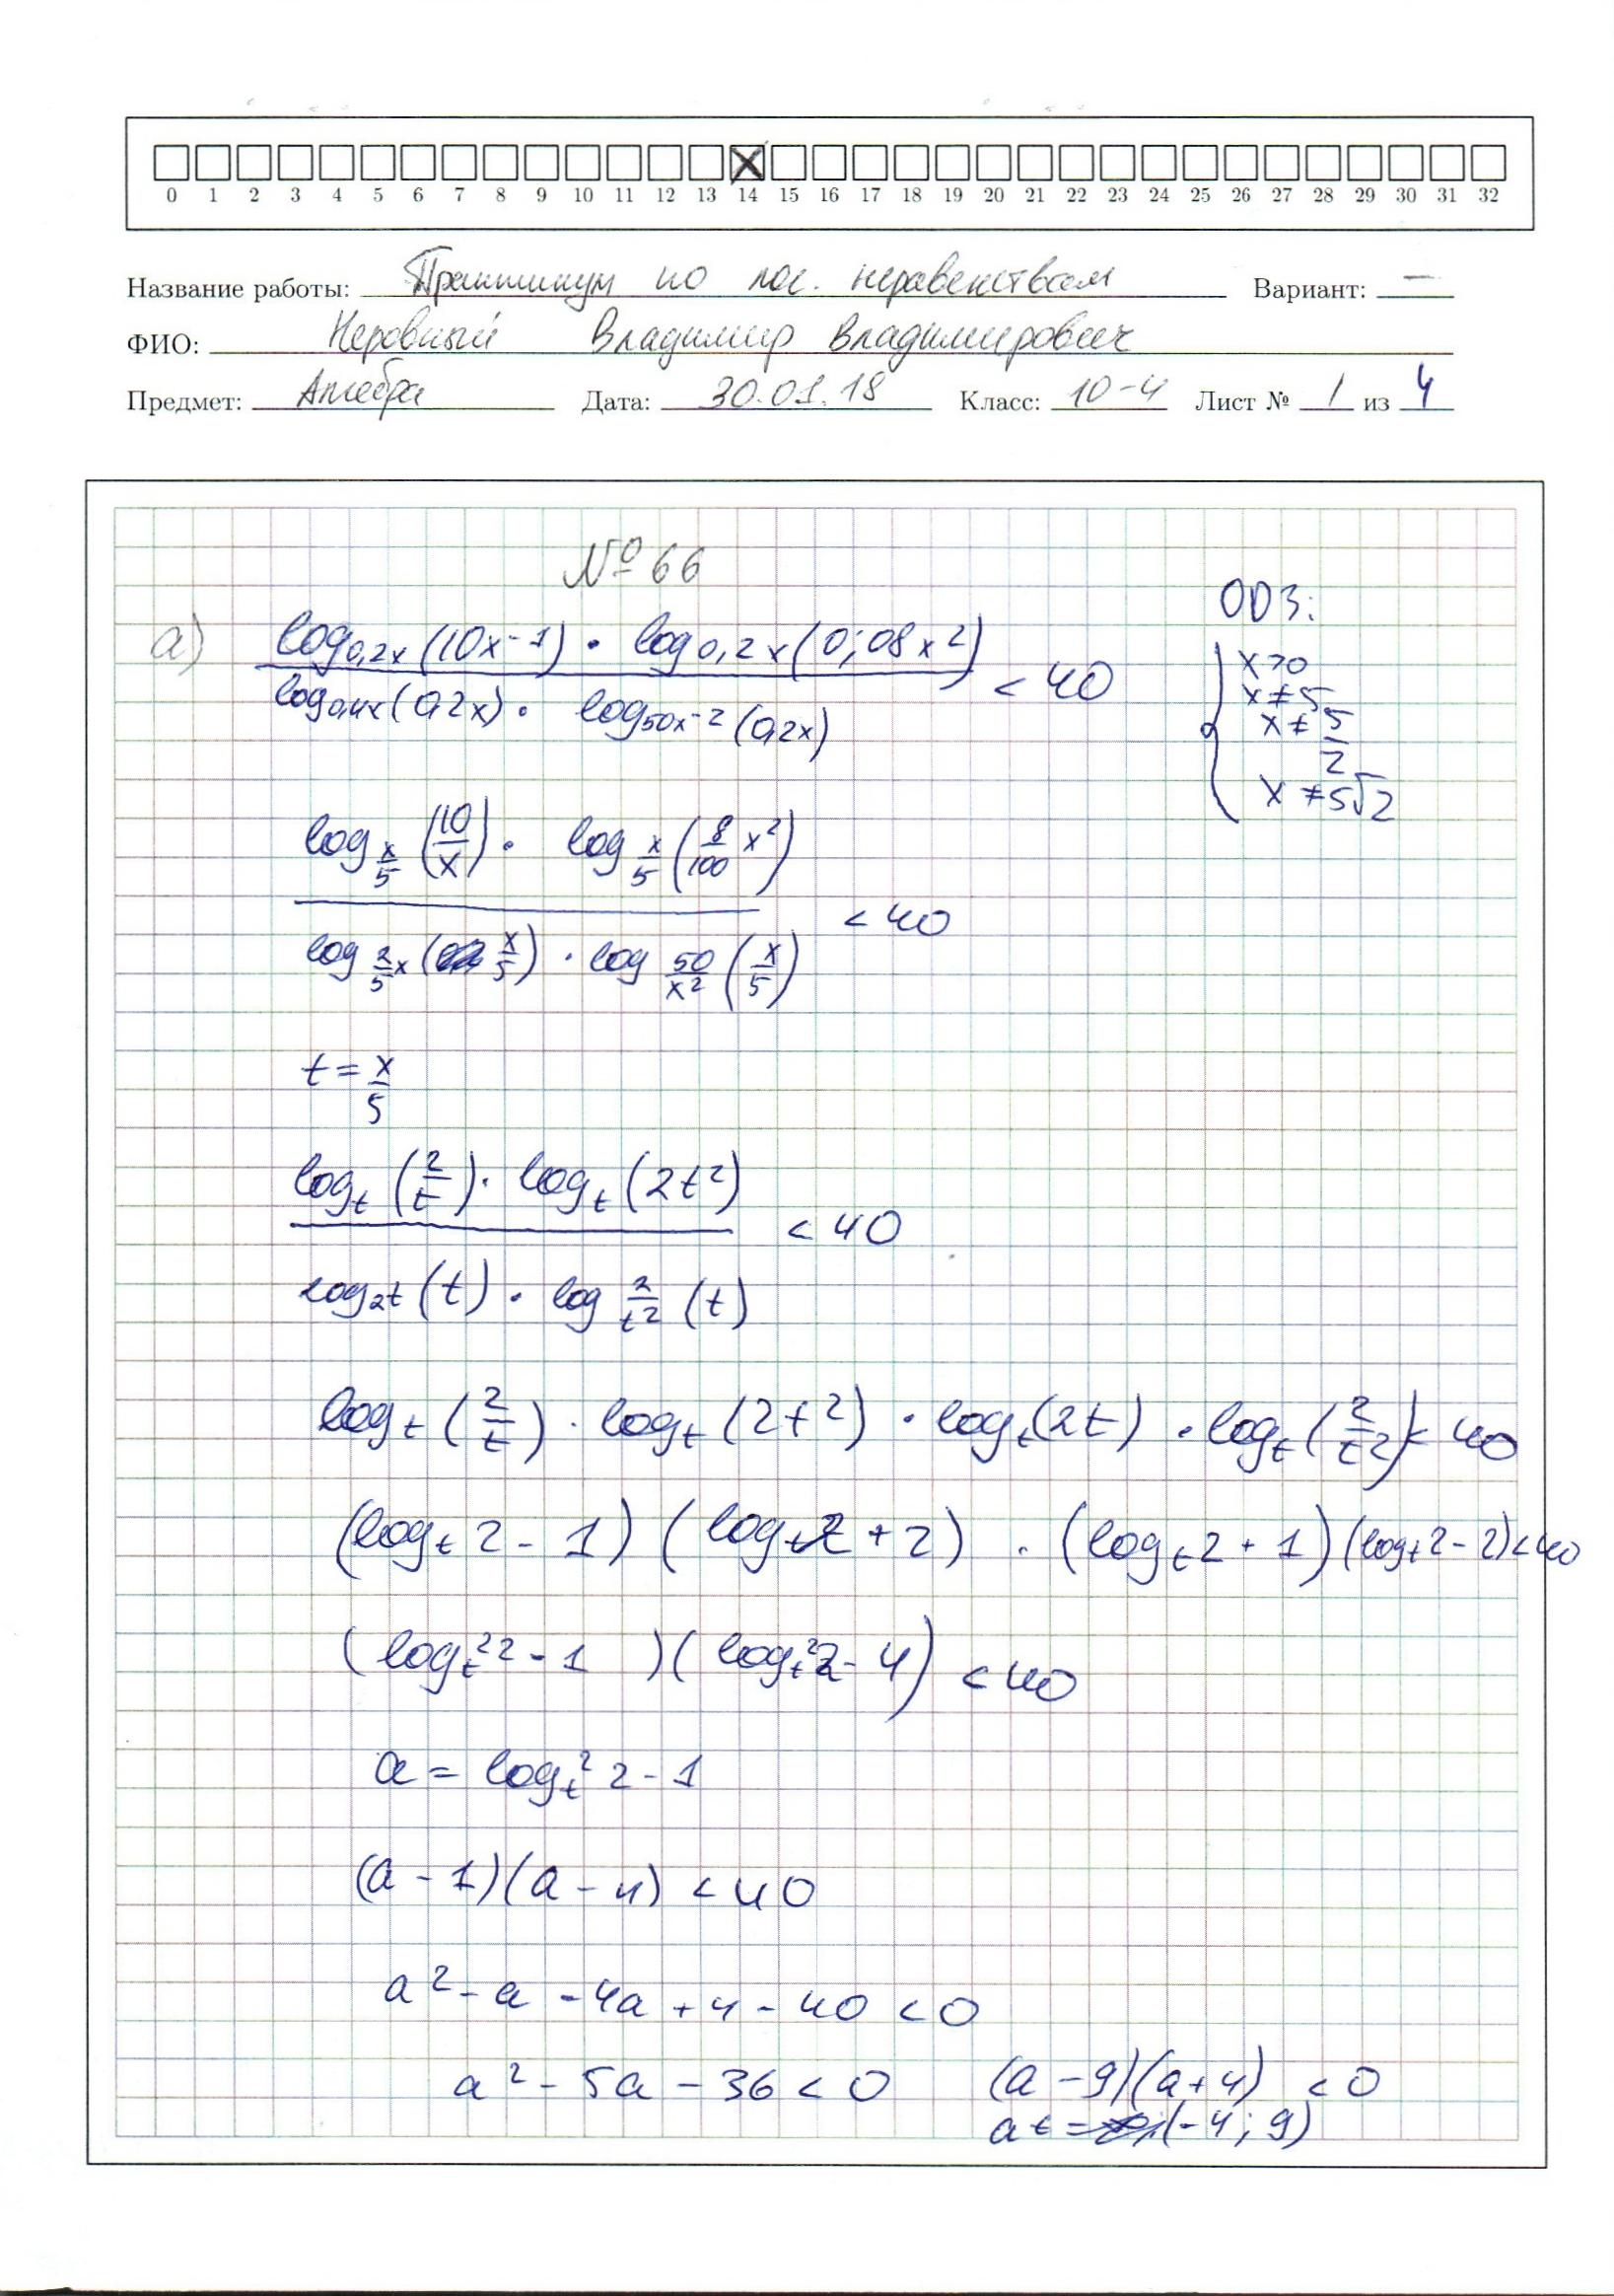 0 1 2 3 4 5 6 7 8 9 10 11 12 13 14 15 16 17 18 19 20 21 22 23 24 25 26 27 28 29 30 31 32
Название работы: Практикум по лог. неравенствам Вариант: —
ФИО: Неровный Владимир Владимирович
Предмет: Алгебра Дата: 30.01.18 Класс: 10-4 Лист № 1 из 4
№ 66
ОДЗ:
x>0
x≠5
x≠5/2
x≠5√2
а) (log_{0,2x}(10x^{-1}) · log_{0,2x}(0,08x²)) / (log_{0,4x}(0,2x) · log_{50x^{-2}}(0,2x)) < 40
(log_{x/5}(10/x) · log_{x/5}(8/100 x²)) / (log_{2/5 x}(x/5) · log_{50/x²}(x/5)) < 40
t = x/5
(log_t(2/t) · log_t(2t²)) / (log_{2t}(t) · log_{2/t²}(t)) < 40
log_t(2/t) · log_t(2t²) · log_t(2t) · log_t(2/t²) < 40
(log_t 2 - 1)(log_t 2 + 2) · (log_t 2 + 1)(log_t 2 - 2) < 40
(log_t² 2 - 1)(log_t² 2 - 4) < 40
a = log_t² 2 - 1
(a - 1)(a - 4) < 40
a² - a - 4a + 4 - 40 < 0
a² - 5a - 36 < 0 (a - 9)(a + 4) < 0
(-4; 9)